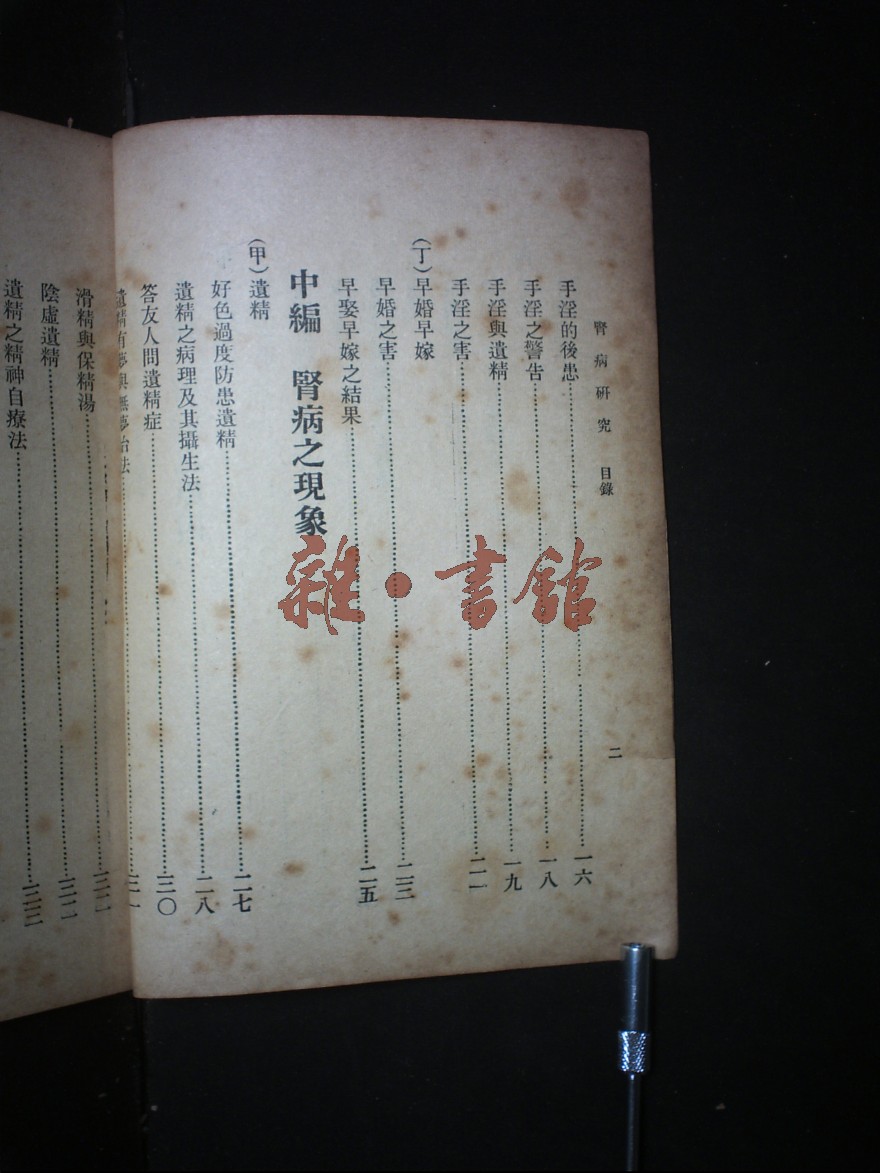 腎病研究 目錄
二
手淫的後患……一六
手淫之警告……一八
手淫與遺精……一九
手淫之害……二一
(丁)早婚早嫁
早婚之害……二三
早娶早嫁之結果……二五
中編 腎病之現象
(甲)遺精
好色過度防患遺精……二七
遺精之病理及其攝生法……二八
答友人問遺精症……三〇
遺精有夢與無夢治法……三一
滑精與保精湯……三二
陰虛遺精……三二
遺精之精神自療法……三三
雜·書館